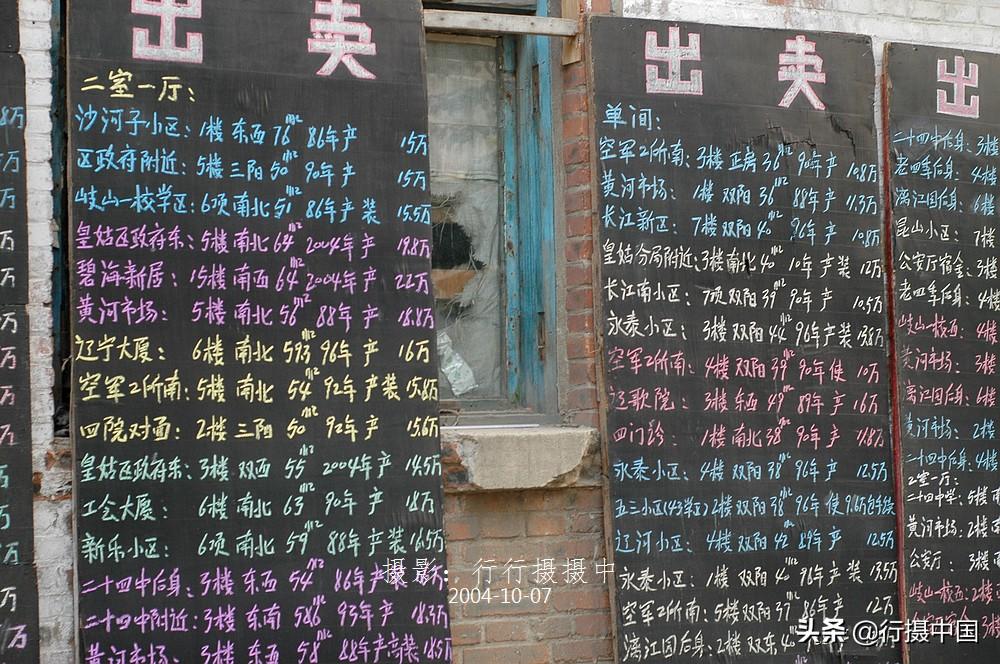 出卖
二室一厅:
沙河子小区: 1楼 东西 76M2 86年产 15万
区政府附近: 5楼 三阳 50M2 90年产 15万
岐山一校学区: 6顶 南北 51M2 86年产装 15.5万
皇姑区政府东: 5楼 南北 64M2 2004年产 19.8万
碧海新居: 15楼 南西 64M2 2004年产 22万
黄河市场: 5楼 南北 58M2 88年产 18.8万
辽宁大厦: 6楼 南北 593 96年产 16万
空军2所南: 5楼 南北 54M2 92年产装 15.8万
四院对面: 2楼 三阳 50M2 92年产 15.6万
皇姑区政府东: 3楼 双西 55M2 2004年产 14.5万
工会大厦: 6楼 南北 63M2 90年产 18万
新乐小区: 6顶 南北 59M2 88年产装 16.5万
二十四中后身: 3楼 东西 54M2 86年产
二十四中附近: 3楼 东南 58.6M2 93年产 18.3万
黄河市场: 3楼 南北 58M2 88年产高装 18.5万
出卖
单间:
空军2所南: 3楼 正房 36M2 90年产 10.8万
黄河市场: 1楼 双阳 36M2 88年产 11.3万
长江新区: 7楼 双阳 40M2 96年产 10.8万
皇姑分局附近: 3楼 南北 40M2 10年产装 12万
长江南小区: 7顶 双阳 39M2 90年产 10.5万
永泰小区: 3楼 双阳 44M2 96年产装 13.8万
空军2所南: 4楼 双阳 39M2 90年使 10万
辽歌院: 3楼 东西 49M2 89年产 16万
四门诊: 1楼 南北 38M2 90年产 11.8万
永泰小区: 4楼 双阳 38M2 96年产 12.5万
五三小区(43学区) 2楼 双阳 38M2 96年使
辽河小区: 4楼 双阳 42M2 89年产 12.5万
永泰小区: 1楼 双阳 40M2 96年产装 13.5万
空军2所南: 5楼 双阳 37M2 86年产 12万
漓江园后身: 2楼 双东 40M2
出
二十四中后身: 3楼
老四季后身: 4楼
漓江园后身: 6楼
昆山小区: 7楼
公安厅宿舍: 3楼
老四季后身: 4楼
岐山一校西: 4楼
黄河市场: 3楼
漓江园后身: 6楼
黄河市场: 2楼
二十四中后身: 4楼
2室一厅:
二十四中学: 5楼
黄河市场: 2楼
公安厅: 3楼
岐山一校西: 2楼
摄影:行行摄摄中
2004-10-07
头条 @行摄中国